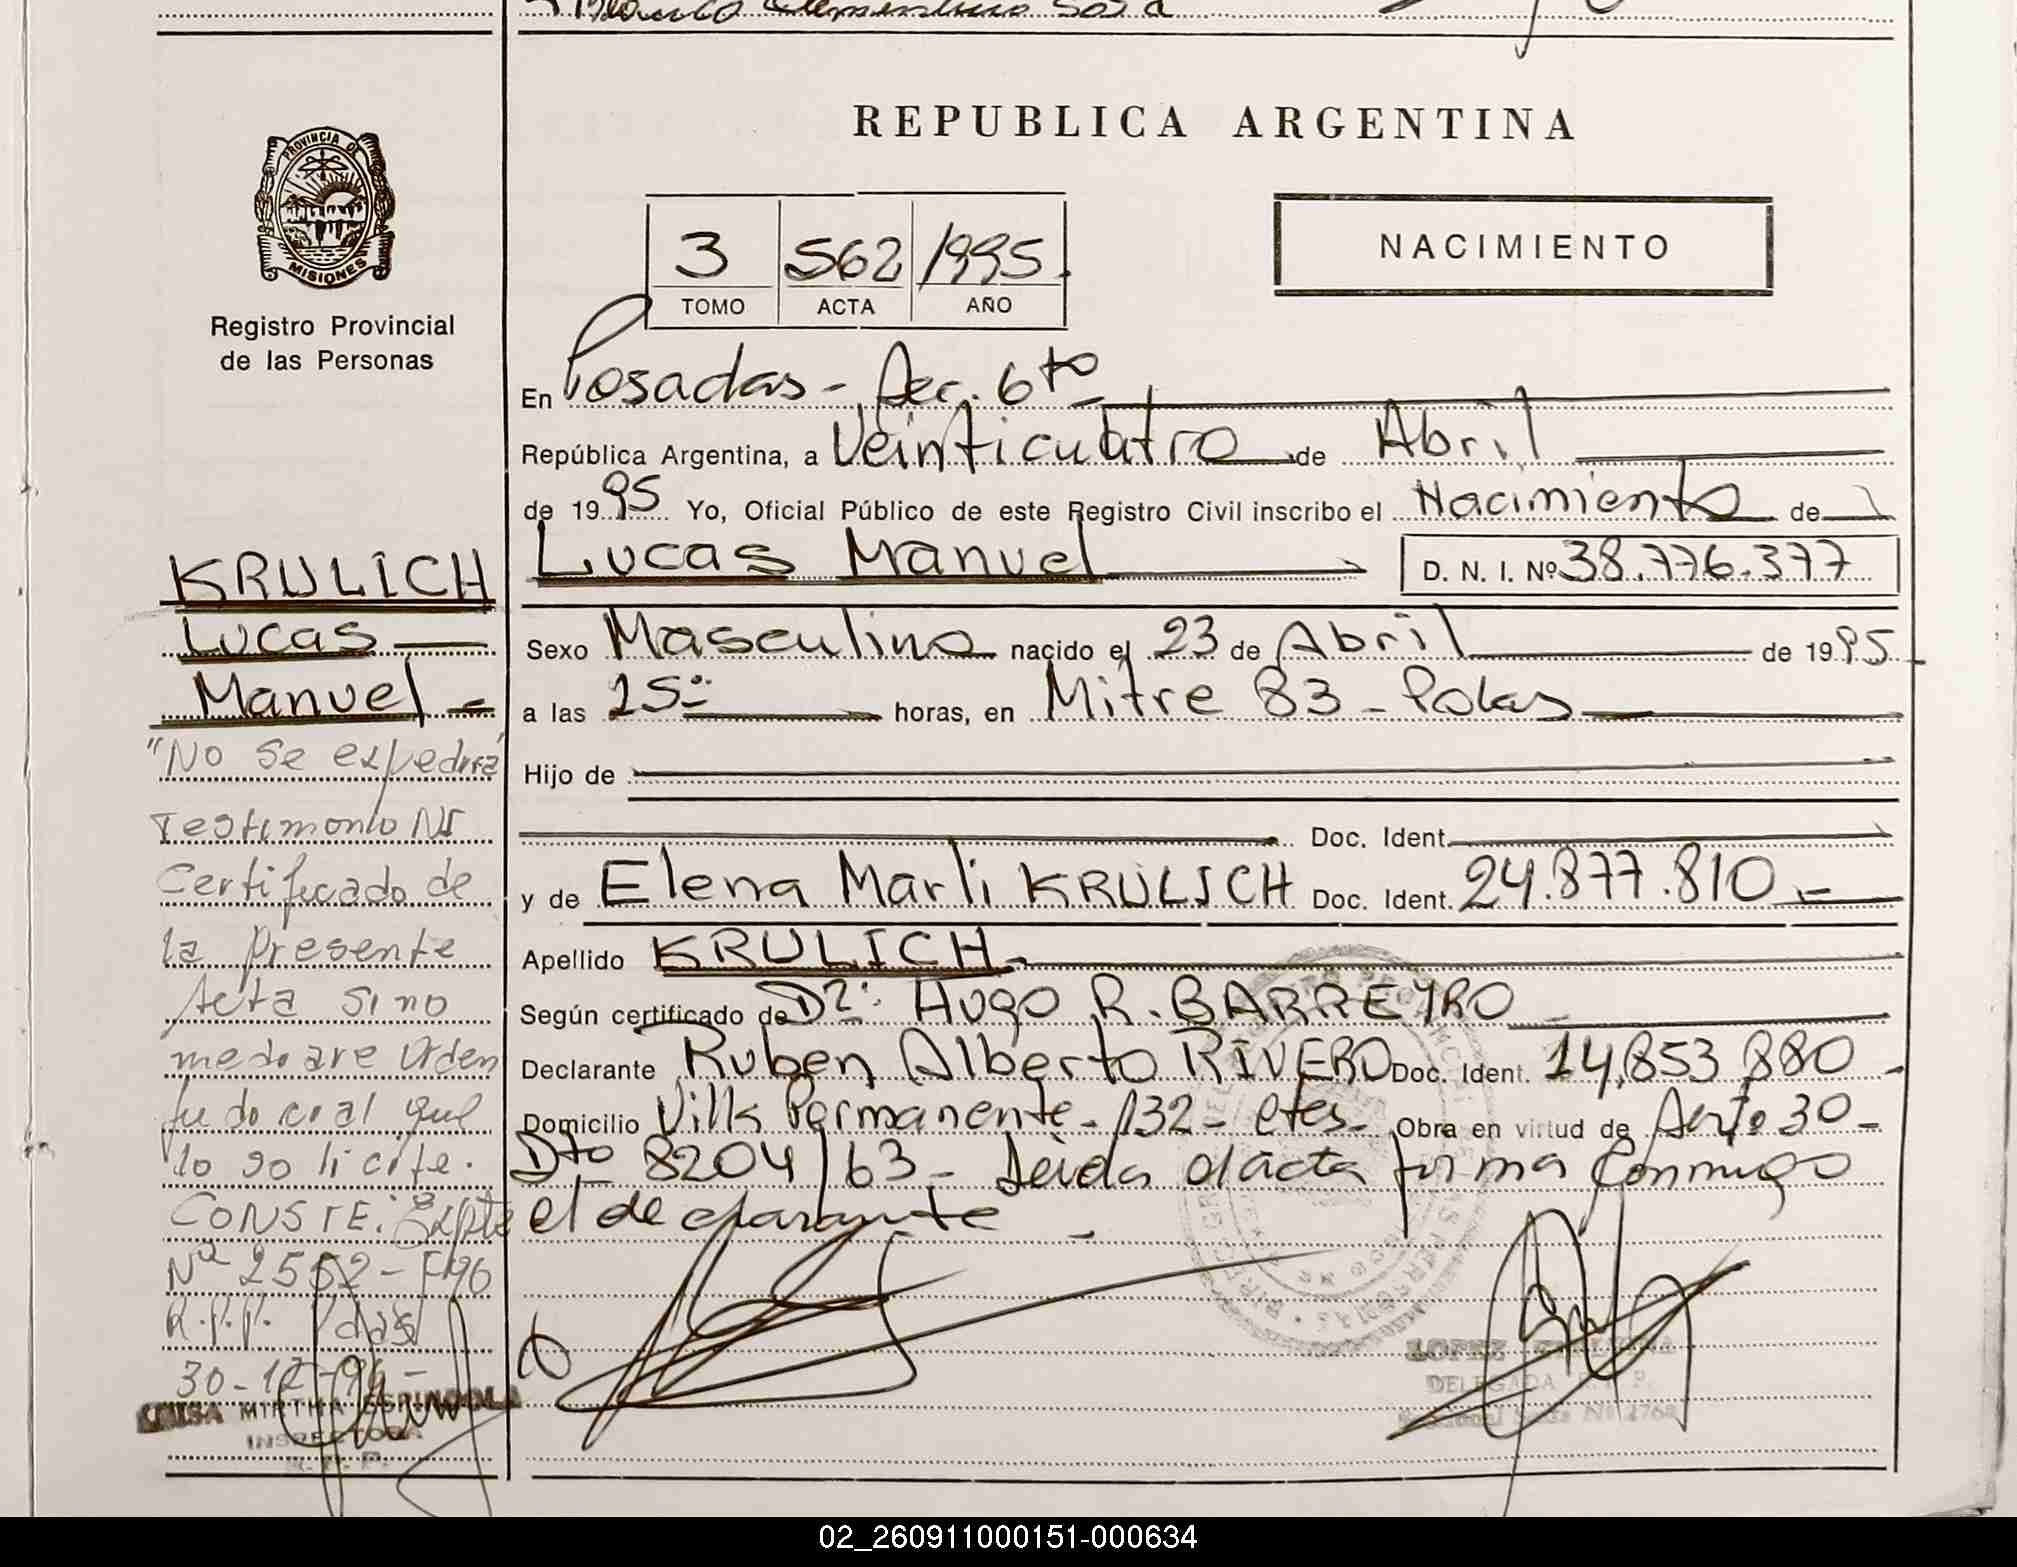 Clementino Sosa
PROVINCIA DE
MISIONES
Registro Provincial
de las Personas
REPUBLICA ARGENTINA
NACIMIENTO
3 562 1995
TOMO ACTA AÑO
En Posadas - Sec. 6to
República Argentina, a Veinticuatro de Abril
de 1995 Yo, Oficial Público de este Registro Civil inscribo el Nacimiento de
Lucas Manuel D. N. I. Nº 38.776.377
Sexo Masculino nacido el 23 de Abril de 1995
a las 15 horas, en Mitre 83 - Pdas
Hijo de
Doc. Ident.
y de Elena Marli KRULICH Doc. Ident. 24.877.810
Apellido KRULICH
Según certificado de Dr. HUGO R. BARREYRO
Declarante Ruben Alberto RIVERO Doc. Ident. 14.853.880
Domicilio Villa Permanente - 132 - Obra en virtud de 30
Dto 8204/63 - Leida el acta firma Conmigo
el declarante
KRULICH
Lucas
Manuel
"No se expedira
Testimonio Ni
Certificado de
la presente
Acta sino
mediare Orden
Judicial que
lo solicite.
CONSTE: Expte
Nº 2552-F-96
R.P.P. Pdas
30-12-96
LUISA MIRTHA ESPINDOLA
INSPECTORA
R. P. P.
LOPEZ
DELEGADA R. P. P.
02_260911000151-000634